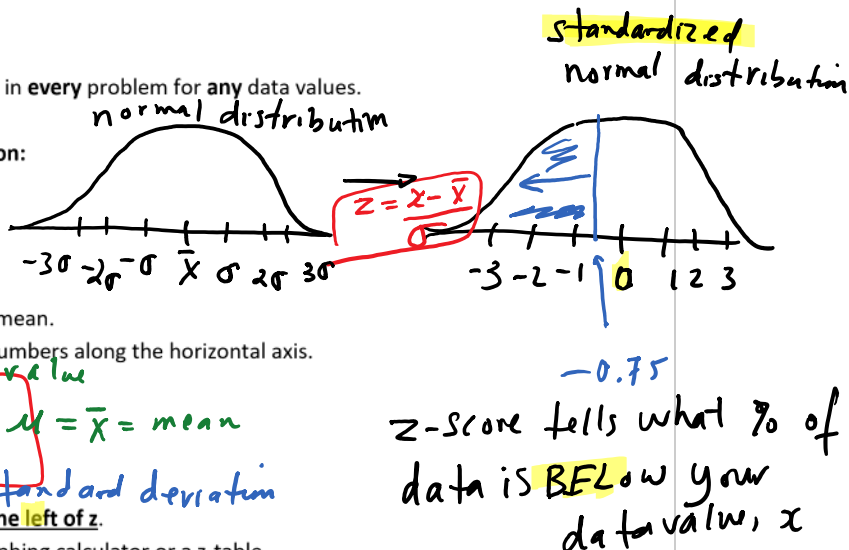 standardized
normal distribution
in every problem for any data values.
normal distribution
on:
z = x - x̄ / σ
-3σ -2σ -σ x̄ σ 2σ 3σ
-3 -2 -1 0 1 2 3
mean.
umbers along the horizontal axis.
value
-0.75
μ = x̄ = mean
z-score tells what % of
data is BELOW your
data value, x
standard deviation
he left of z.
hing calculator or a z-table